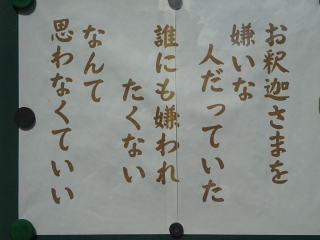 お釈迦さまを
嫌いな
人だっていた
誰にも嫌われ
たくない
なんて
思わなくていい